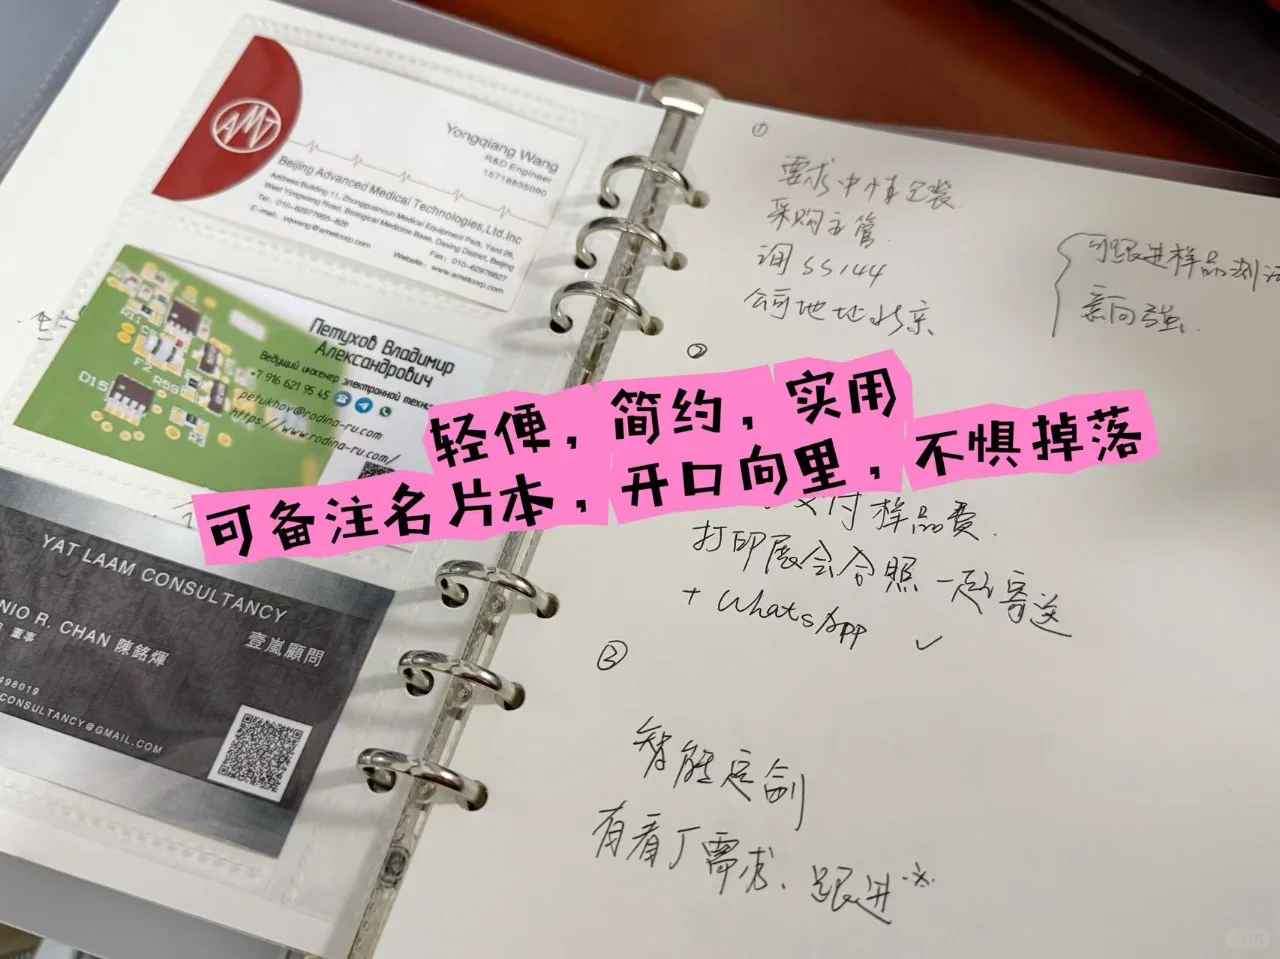 AMT
Yongqiang Wang
R&D Engineer
15718855090
Beijing Advanced Medical Technologies,Ltd.Inc
Address:Building 11, Zhongguancun Medical Equipment Park, Yard 26,
West Yongwang Road, Biological Medicine Base, Daxing District, Beijing
Tel: 010-62977955-826
Fax: 010-62976827
E-mail: yqwang@ametcorp.com
Website: www.ametcorp.com
Петухов Владимир
Александрович
Ведущий инженер электронной техни
+7 916 621 95 45
petukhov@rodina-ru.com
https://www.rodina-ru.com/
F2
R59
D15
YAT LAAM CONSULTANCY
壹嵐顧問
NIO R. CHAN 陳銘輝
董事
498019
CONSULTANCY@GMAIL.COM
轻便，简约，实用
可备注名片本，开口向里，不惧掉落
①
采购主管
询 SS144
公司地址北京
可跟进样品测试
意向强
②
支付样品费.
打印展会合照一起寄送
+ WhatsApp ✓
③
智能定制
有看厂需求、跟进